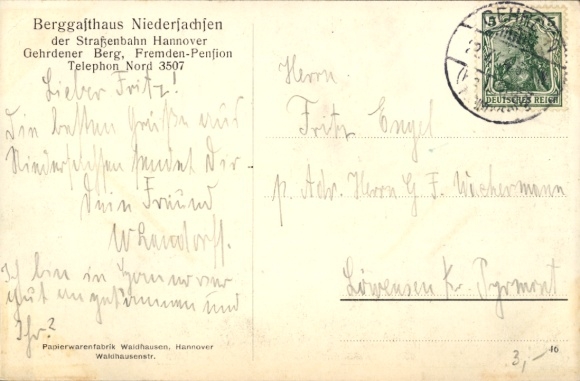 Berggasthaus Niedersachsen
der Straßenbahn Hannover
Gehrdener Berg, Fremden-Pension
Telephon Nord 3507
Lieber Fritz!
Die besten Grüße aus
Niedersachsen sendet Dir
Dein Freund
Ich bin in Hannover
gut angekommen und
Ihr?
Papierwarenfabrik Waldhausen, Hannover
Waldhausenstr.
GEHRDEN
5 5
DEUTSCHES REICH
Herrn
Fritz Engel
p. Adr. Herrn G. F. Wachermann
Löwensen Kr. Pyrmont
3,-
16